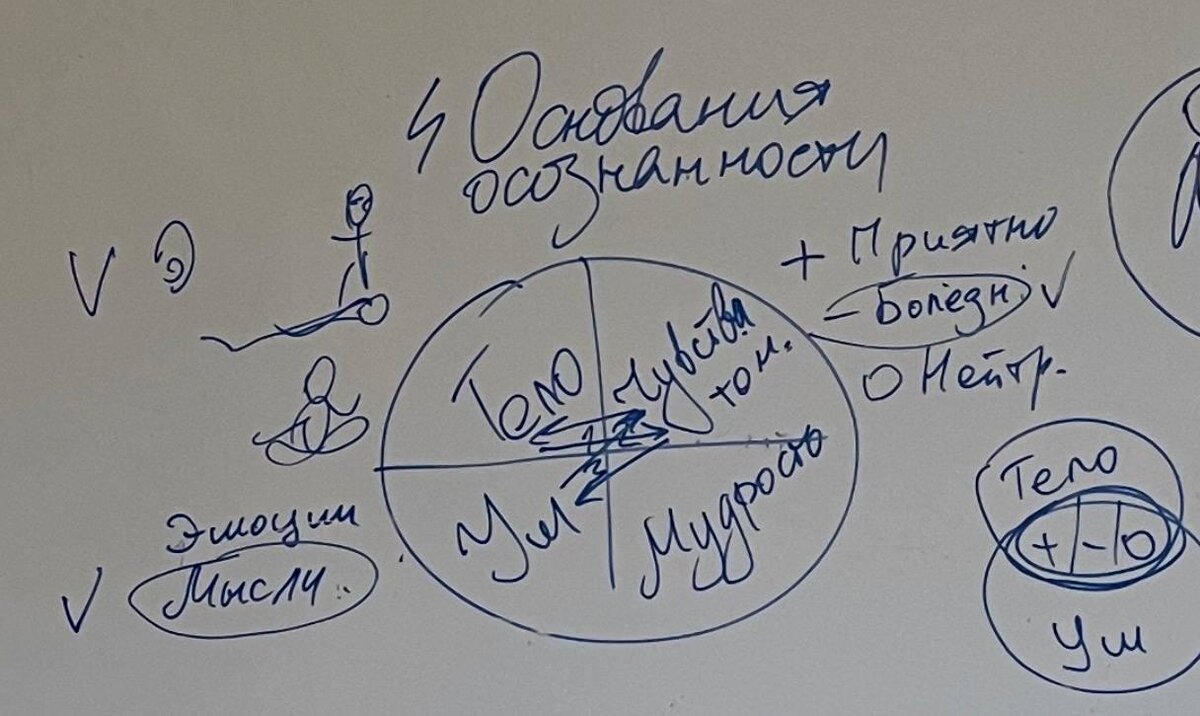 4 Основания
осознанности
+ Приятно
- Болезн. ✓
О Нейтр.
Тело
Чувства
тон.
Ум
Мудрость
Эмоции
✓ Мысли
Тело
+ | - | О
Ум